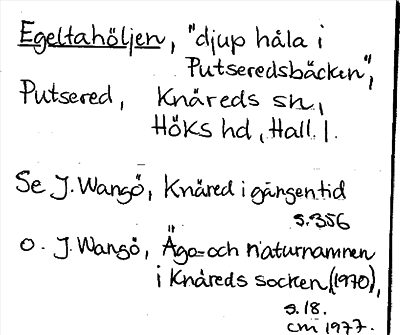 Egeltahöljen, "djup håla i
Putseredsbäcken",
Putsered, Knäreds sn,
Höks hd, Hall. l.
Se J. Wangö, Knäred i gången tid
s. 356
o. J. Wangö, Ägo- och naturnamnen
i Knäreds socken, (1970),
s. 18.
cm 1977.